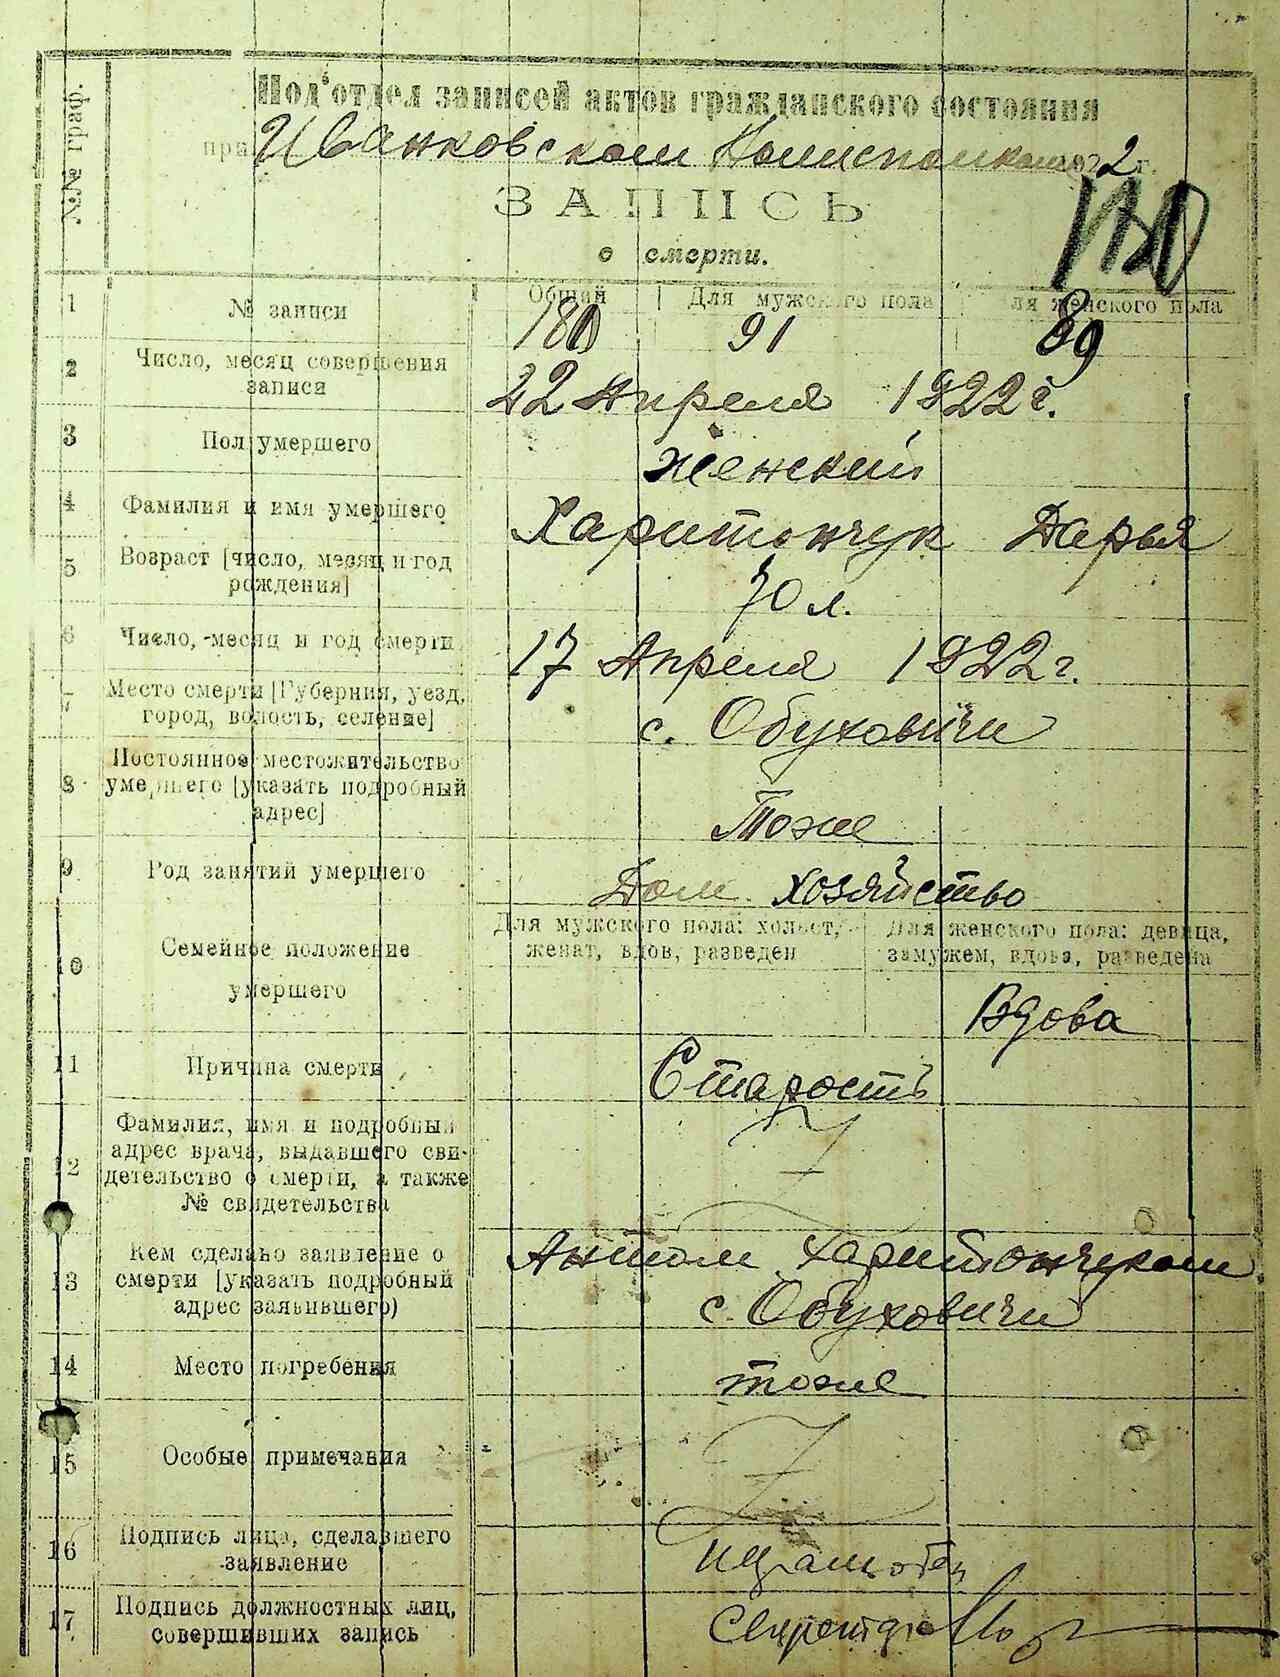 №№ граф.
Под'отдел записей актов гражданского состояния
при Иванковском Волисполкоме 1922 г.
ЗАПИСЬ
о смерти.
180
1 № записи
Общий Для мужского пола Для женского пола
180 91 89
2 Число, месяц совершения
записи
22 Апреля 1922 г.
3 Пол умершего
Женский
4 Фамилия и имя умершего
Харитончук Дарья
5 Возраст [число, месяц и год
рождения]
70 л.
6 Число, месяц и год смерти
17 Апреля 1922 г.
7 Место смерти [Губерния, уезд,
город, волость, селение]
с. Обуховичи
8 Постоянное местожительство
умершего [указать подробный
адрес]
Тоже
9 Род занятий умершего
Дом. хозяйство
10 Семейное положение
умершего
Для мужского пола: холост,
женат, вдов, разведен
Для женского пола: девица,
замужем, вдова, разведена
Вдова
11 Причина смерти
Старость
12 Фамилия, имя и подробный
адрес врача, выдавшего сви-
детельство о смерти, а также
№ свидетельства
13 Кем сделано заявление о
смерти [указать подробный
адрес заявившего)
Антом Харитончуком
с. Обуховичи
14 Место погребения
тоже
15 Особые примечания
16 Подпись лица, сделавшего
заявление
17 Подпись должностных лиц,
совершивших запись
Секретарь